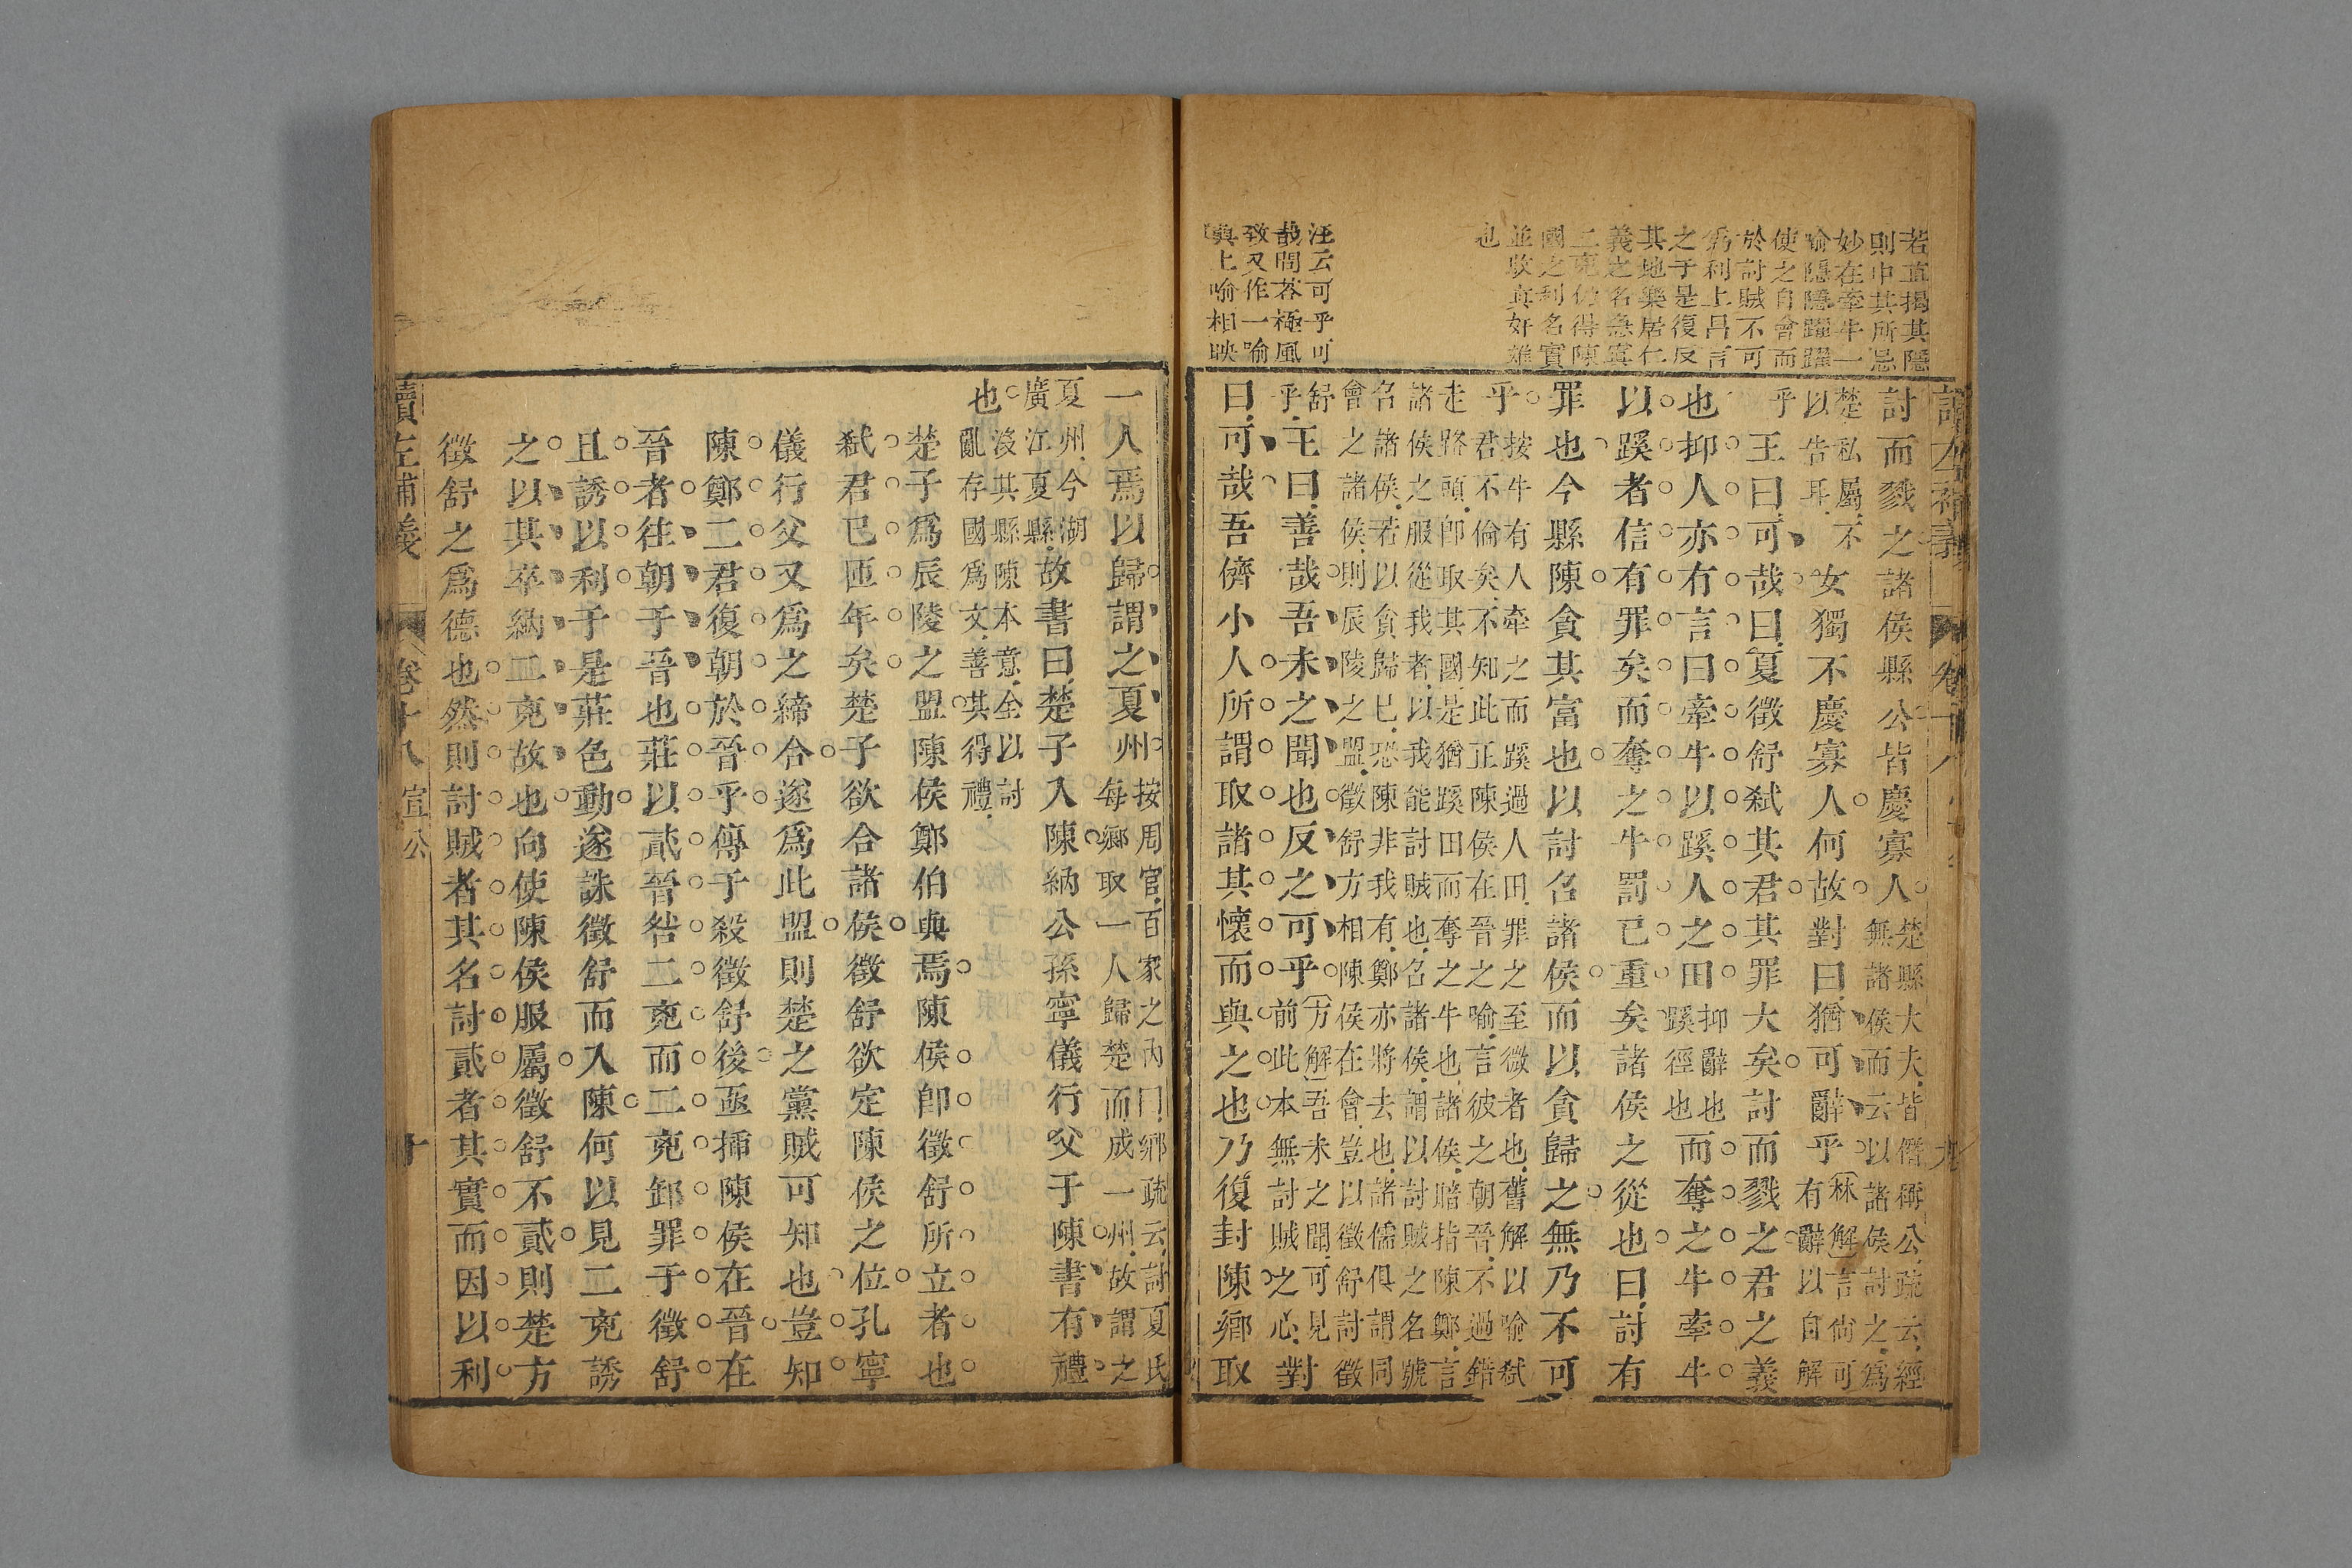 若直揭其隱
則中其所忌
妙在牽牛一
喻隱隱躍躍
使之自會而
於討賊不可
爲利上昌言
之于是復反
其地樂居仁
義之名急寘
二兇仍得陳
國之利名實
並收真奸雄
也
汪云可乎可
哉問荅極風
致又作一喻
與上喻相映
卷十八 九
討而戮之諸侯縣公皆慶寡人
楚縣大夫皆僭稱公疏云經
無諸侯而云以諸侯討之爲
楚私屬不
以告耳
女獨不慶寡人何故對曰猶可辭乎
林解言尚可
有辭以自解
乎王曰可哉曰夏徵舒弑其君其罪大矣討而戮之君之義
也抑人亦有言曰牽牛以蹊人之田
抑辭也
蹊徑也
而奪之牛牽牛
以蹊者信有罪矣而奪之牛罰已重矣諸侯之從也曰討有
罪也今縣陳貪其富也以討召諸侯而以貪歸之無乃不可
乎
按牛有人牽之而蹊過人田罪之至微者也舊解以喻弑
君不倫矣不知此正陳侯在晉之喻言彼之朝晉不過錯
走路頭卽取其國是猶蹊田而奪之牛也諸侯暗指陳鄭言
諸侯之服從我者以我能討賊也名諸侯謂以討賊之名號
名諸侯若以貪歸已恐陳非我有鄭亦將去也諸儒俱謂同
會之諸侯則辰陵之盟徵舒方相陳侯在會豈以徵舒討徵
舒
乎
王曰善哉吾未之聞也反之可乎
方解吾未之聞可見
前此本無討賊之心
對
曰可哉吾儕小人所謂取諸其懷而與之也乃復封陳鄉取
一人焉以歸謂之夏州
按周官百家之內曰鄉疏云討夏氏
每鄉取一人歸楚而成一州故謂之
夏州今湖
廣江夏縣
故書曰楚子入陳納公孫寧儀行父于陳書有禮
也
沒其縣陳本意全以討
亂存國爲文善其得禮
楚子爲辰陵之盟陳侯鄭伯與焉陳侯卽徵舒所立者也
弑君已匝年矣楚子欲合諸侯徵舒欲定陳侯之位孔寧
儀行父又爲之締合遂爲此盟則楚之黨賊可知也豈知
陳鄭二君復朝於晉乎傳于殺徵舒後亟揷陳侯在晉在
晉者往朝于晉也莊以貳晉咎二兇而二兇卸罪于徵舒
且誘以利于是莊色動遂誅徵舒而入陳何以見二兇誘
之以其卒納二兇故也向使陳侯服屬徵舒不貳則楚方
徵舒之爲德也然則討賊者其名討貳者其實而因以利
讀左補義 卷十八 宣公 十